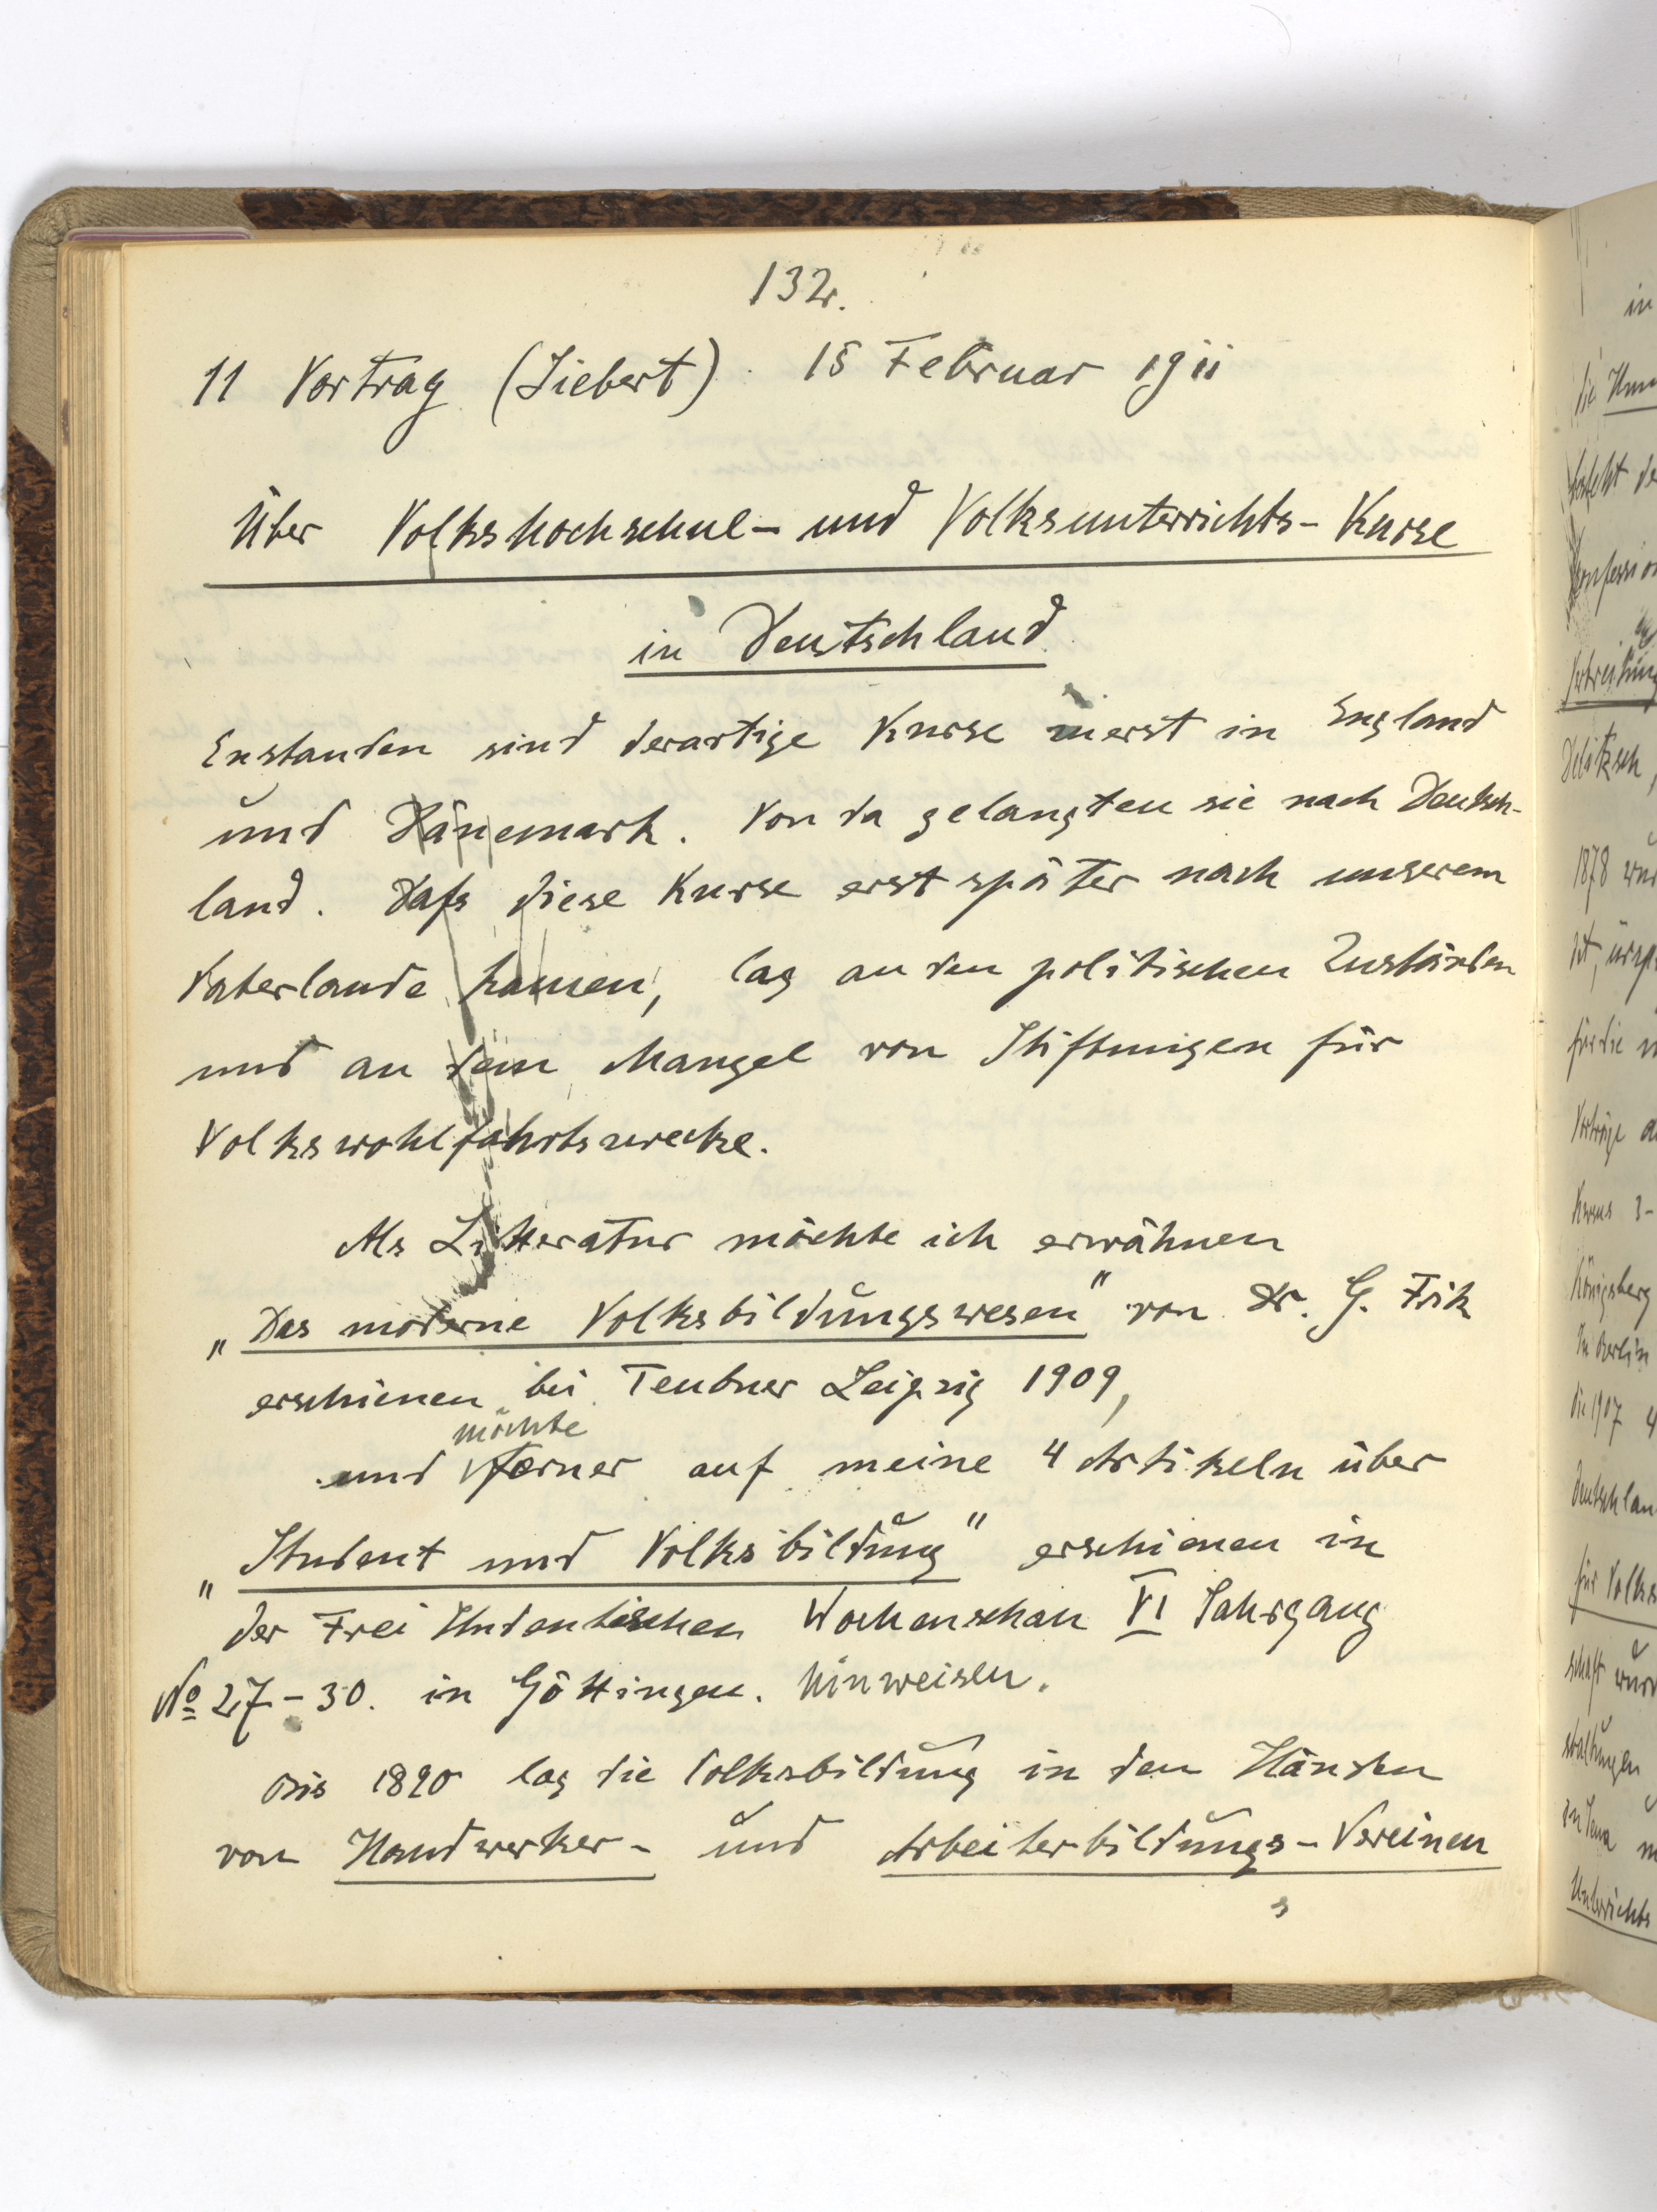 132.
11 Vortrag (Siebert) 15 Februar 1911
Über Volkshochschul- und Volksunterrichts-Kurse
in Deutschland
Enstanden sind derartige Kurse zuerst in England
und Dänemark. Von da gelangten sie nach Deutsch-
land. Dafs diese Kurse erst später nach unserem
Vaterlande kamen, lag an den politischen Zuständen
und an dem Mangel von Stiftungen für
Volkswohlfahrtszwecke.
Als Litteratur möchte ich erwähnen
„Das moderne Volksbildungswesen" von Dr. G. Frik
erschienen bei Teubner Leipzig 1909,
möchte
und ferner auf meine 4 Artikeln über
„Student und Volksbildung" erschienen in
der Frei Studentischen Wochenschau VI Jahrgang
No 27-30. in Göttingen. hinweisen.
Bis 1890 lag die Volksbildung in den Händen
von Handwerker- und Arbeiterbildungs-Vereinen
in
die
1878
für die
Vorträge
Kursus 3-
Königsberg
In Berlin
die 1907 4
Deutschlan
für Volks
schaft wurd
staltungen
in Jena
Unterrichts